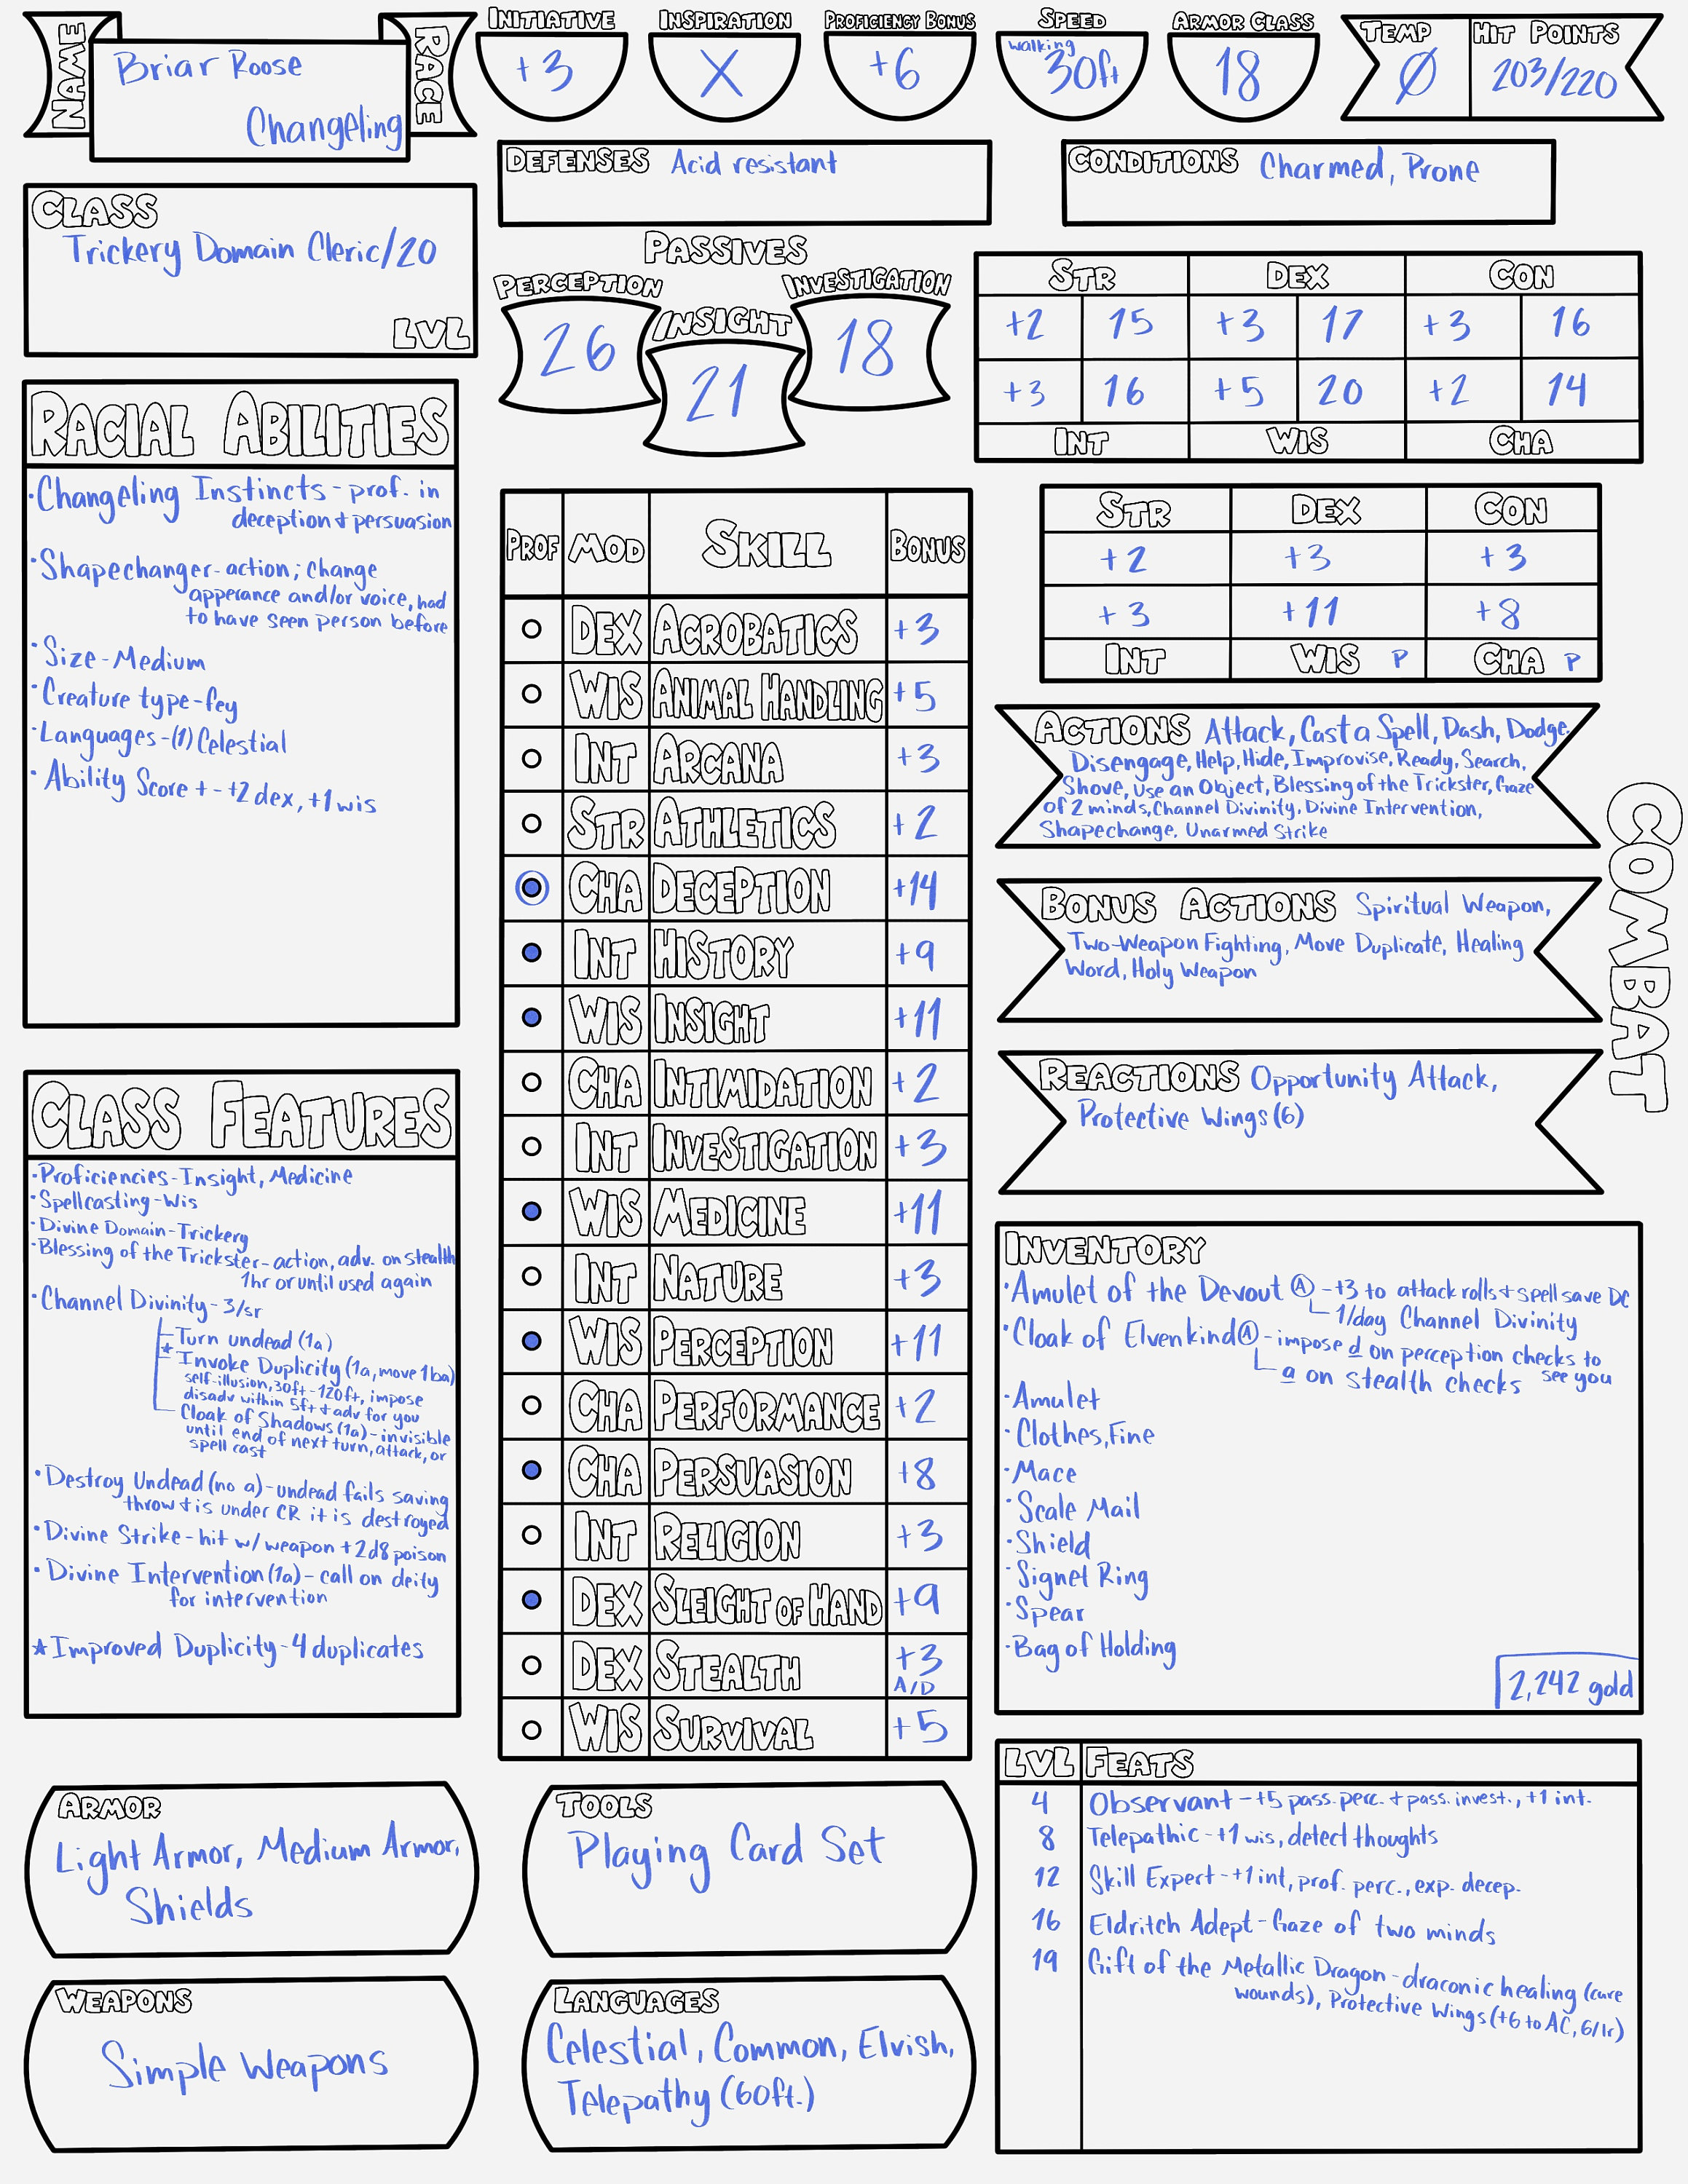 NAME
Briar Roose
Changeling
RACE
INITIATIVE
+3
INSPIRATION
X
PROFICIENCY BONUS
+6
SPEED
walking
30ft
ARMOR CLASS
18
TEMP
Ø
HIT POINTS
203/220
DEFENSES Acid resistant
CONDITIONS Charmed, Prone
CLASS
Trickery Domain Cleric/20
LVL
PASSIVES
PERCEPTION
26
INSIGHT
21
INVESTIGATION
18
STR DEX CON
+2 15 +3 17 +3 16
+3 16 +5 20 +2 14
INT WIS CHA
RACIAL ABILITIES
·Changeling Instincts-prof. in
deception + persuasion
·Shapechanger-action; change
apperance and/or voice, had
to have seen person before
·Size-Medium
·Creature type-fey
·Languages-(1) Celestial
·Ability Score + - +2 dex, +1 wis
STR DEX CON
+2 +3 +3
+3 +11 +8
INT WIS P CHA P
PROF MOD SKILL BONUS
DEX ACROBATICS +3
WIS ANIMAL HANDLING +5
INT ARCANA +3
STR ATHLETICS +2
CHA DECEPTION +14
INT HISTORY +9
WIS INSIGHT +11
CHA INTIMIDATION +2
INT INVESTIGATION +3
WIS MEDICINE +11
INT NATURE +3
WIS PERCEPTION +11
CHA PERFORMANCE +2
CHA PERSUASION +8
INT RELIGION +3
DEX SLEIGHT OF HAND +9
DEX STEALTH +3
A/D
WIS SURVIVAL +5
COMBAT
ACTIONS Attack, Cast a Spell, Dash, Dodge,
Disengage, Help, Hide, Improvise, Ready, Search,
Shove, Use an Object, Blessing of the Trickster, Gaze
of 2 minds, Channel Divinity, Divine Intervention,
Shapechange, Unarmed Strike
BONUS ACTIONS Spiritual Weapon,
Two-Weapon Fighting, Move Duplicate, Healing
Word, Holy Weapon
REACTIONS Opportunity Attack,
Protective Wings (6)
CLASS FEATURES
·Proficiencies-Insight, Medicine
·Spellcasting-Wis
·Divine Domain-Trickery
·Blessing of the Trickster-action, adv. on stealth
1hr or until used again
·Channel Divinity-3/sr
Turn undead (1a)
★ Invoke Duplicity (1a, move 1ba)
self-illusion, 30ft-120ft, impose
disadv within 5ft + adv for you
Cloak of Shadows (1a)-invisible
until end of next turn, attack, or
spell cast
·Destroy Undead (no a)-undead fails saving
throw + is under CR it is destroyed
·Divine Strike-hit w/ weapon +2d8 poison
·Divine Intervention (1a)-call on deity
for intervention
★Improved Duplicity-4 duplicates
INVENTORY
·Amulet of the Devout Ⓐ -+3 to attack rolls + spell save DC
1/day Channel Divinity
·Cloak of Elvenkind Ⓐ-impose d on perception checks to
see you
a on stealth checks
·Amulet
·Clothes, Fine
·Mace
·Scale Mail
·Shield
·Signet Ring
·Spear
·Bag of Holding
2,242 gold
ARMOR
Light Armor, Medium Armor,
Shields
TOOLS
Playing Card Set
WEAPONS
Simple Weapons
LANGUAGES
Celestial, Common, Elvish,
Telepathy (60ft.)
LVL FEATS
4 Observant-+5 pass. perc. + pass. invest., +1 int.
8 Telepathic-+1 wis, detect thoughts
12 Skill Expert-+1 int, prof. perc., exp. decep.
16 Eldritch Adept-Gaze of two minds
19 Gift of the Metallic Dragon-draconic healing (cure
wounds), Protective Wings (+6 to AC, 6/lr)